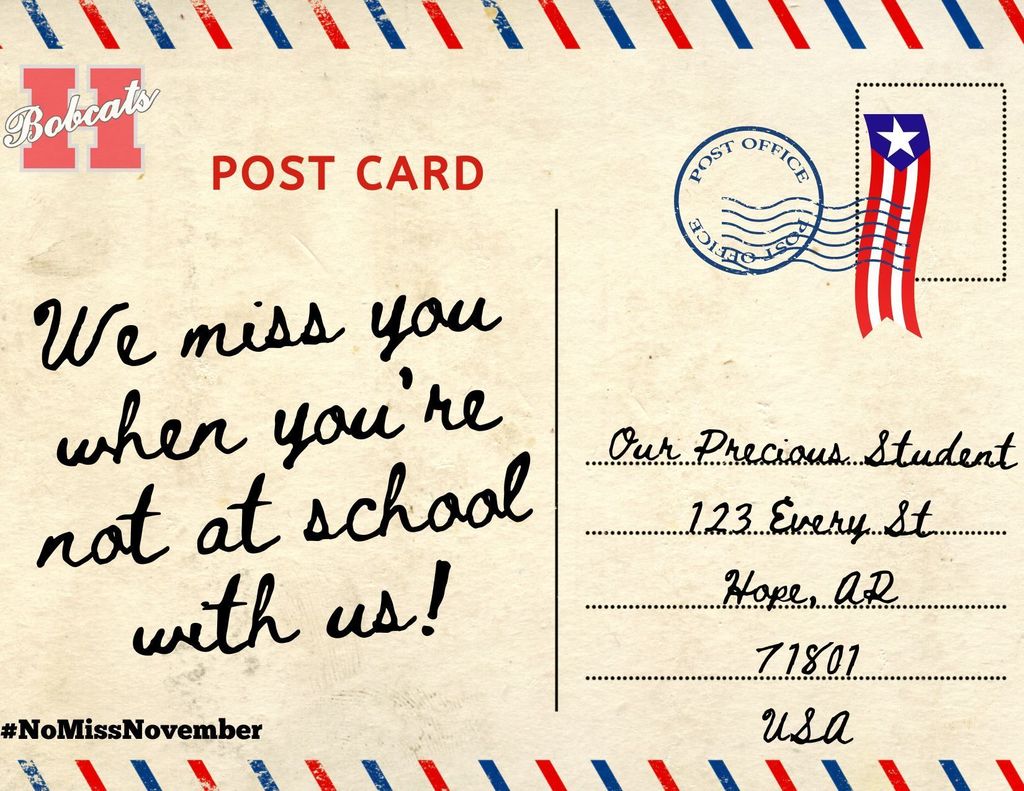 Bobcats
H
POST CARD
POST OFFICE
POST OFFICE
We miss you
when you're
not at school
with us!
Our Precious Student
123 Every St
Hope, AR
71801
USA
#NoMissNovember